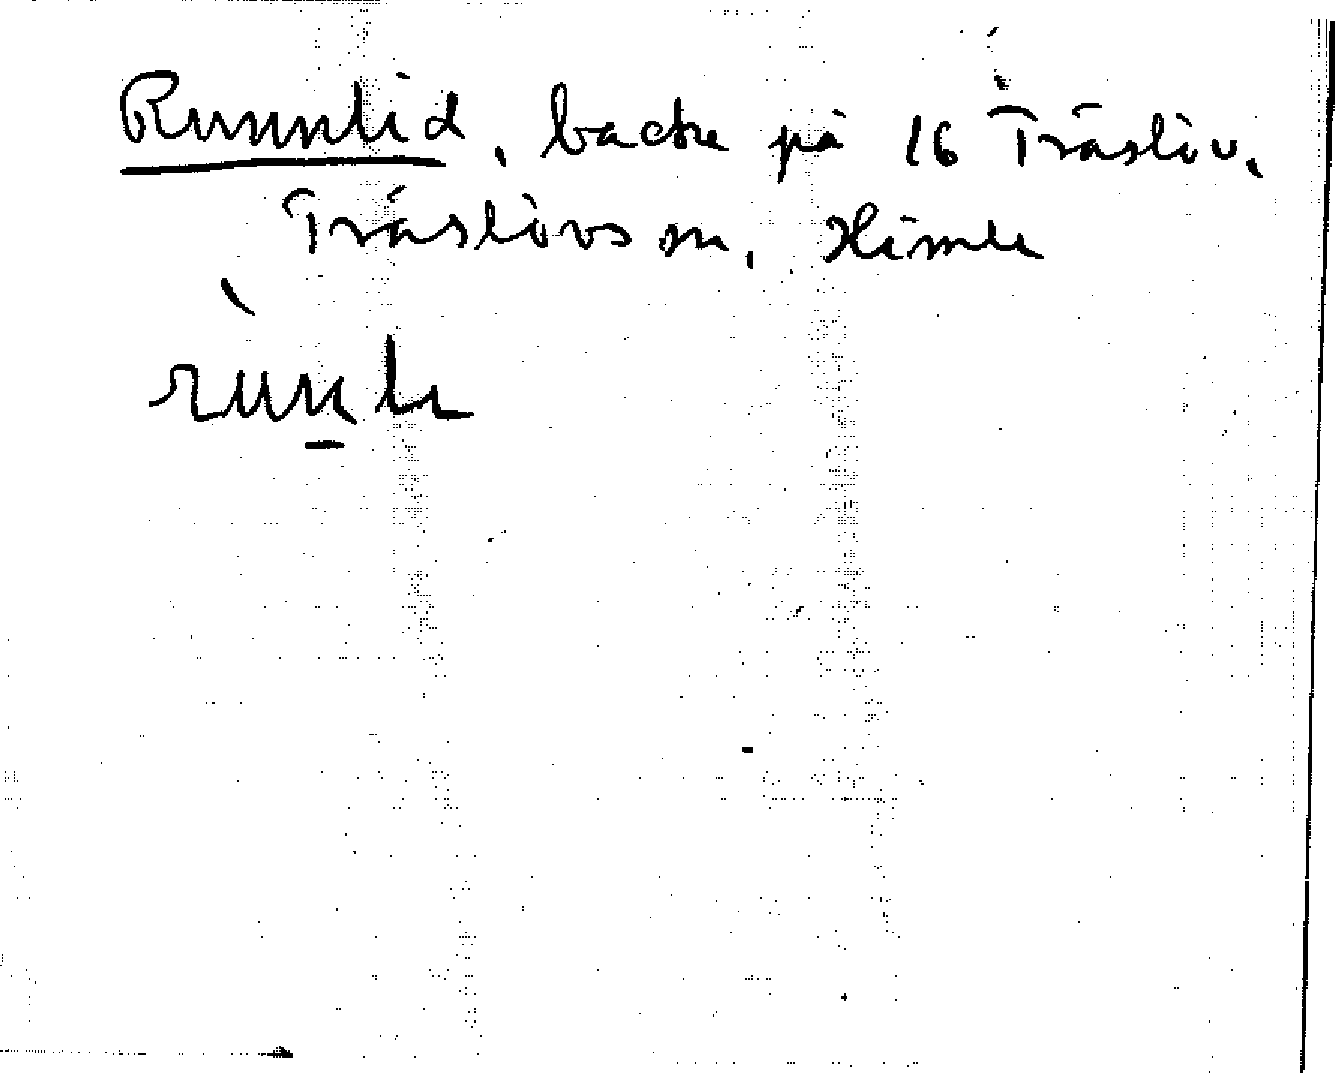 Runnlid, backe på 16 Träslöv,
Träslövs sn, Himle